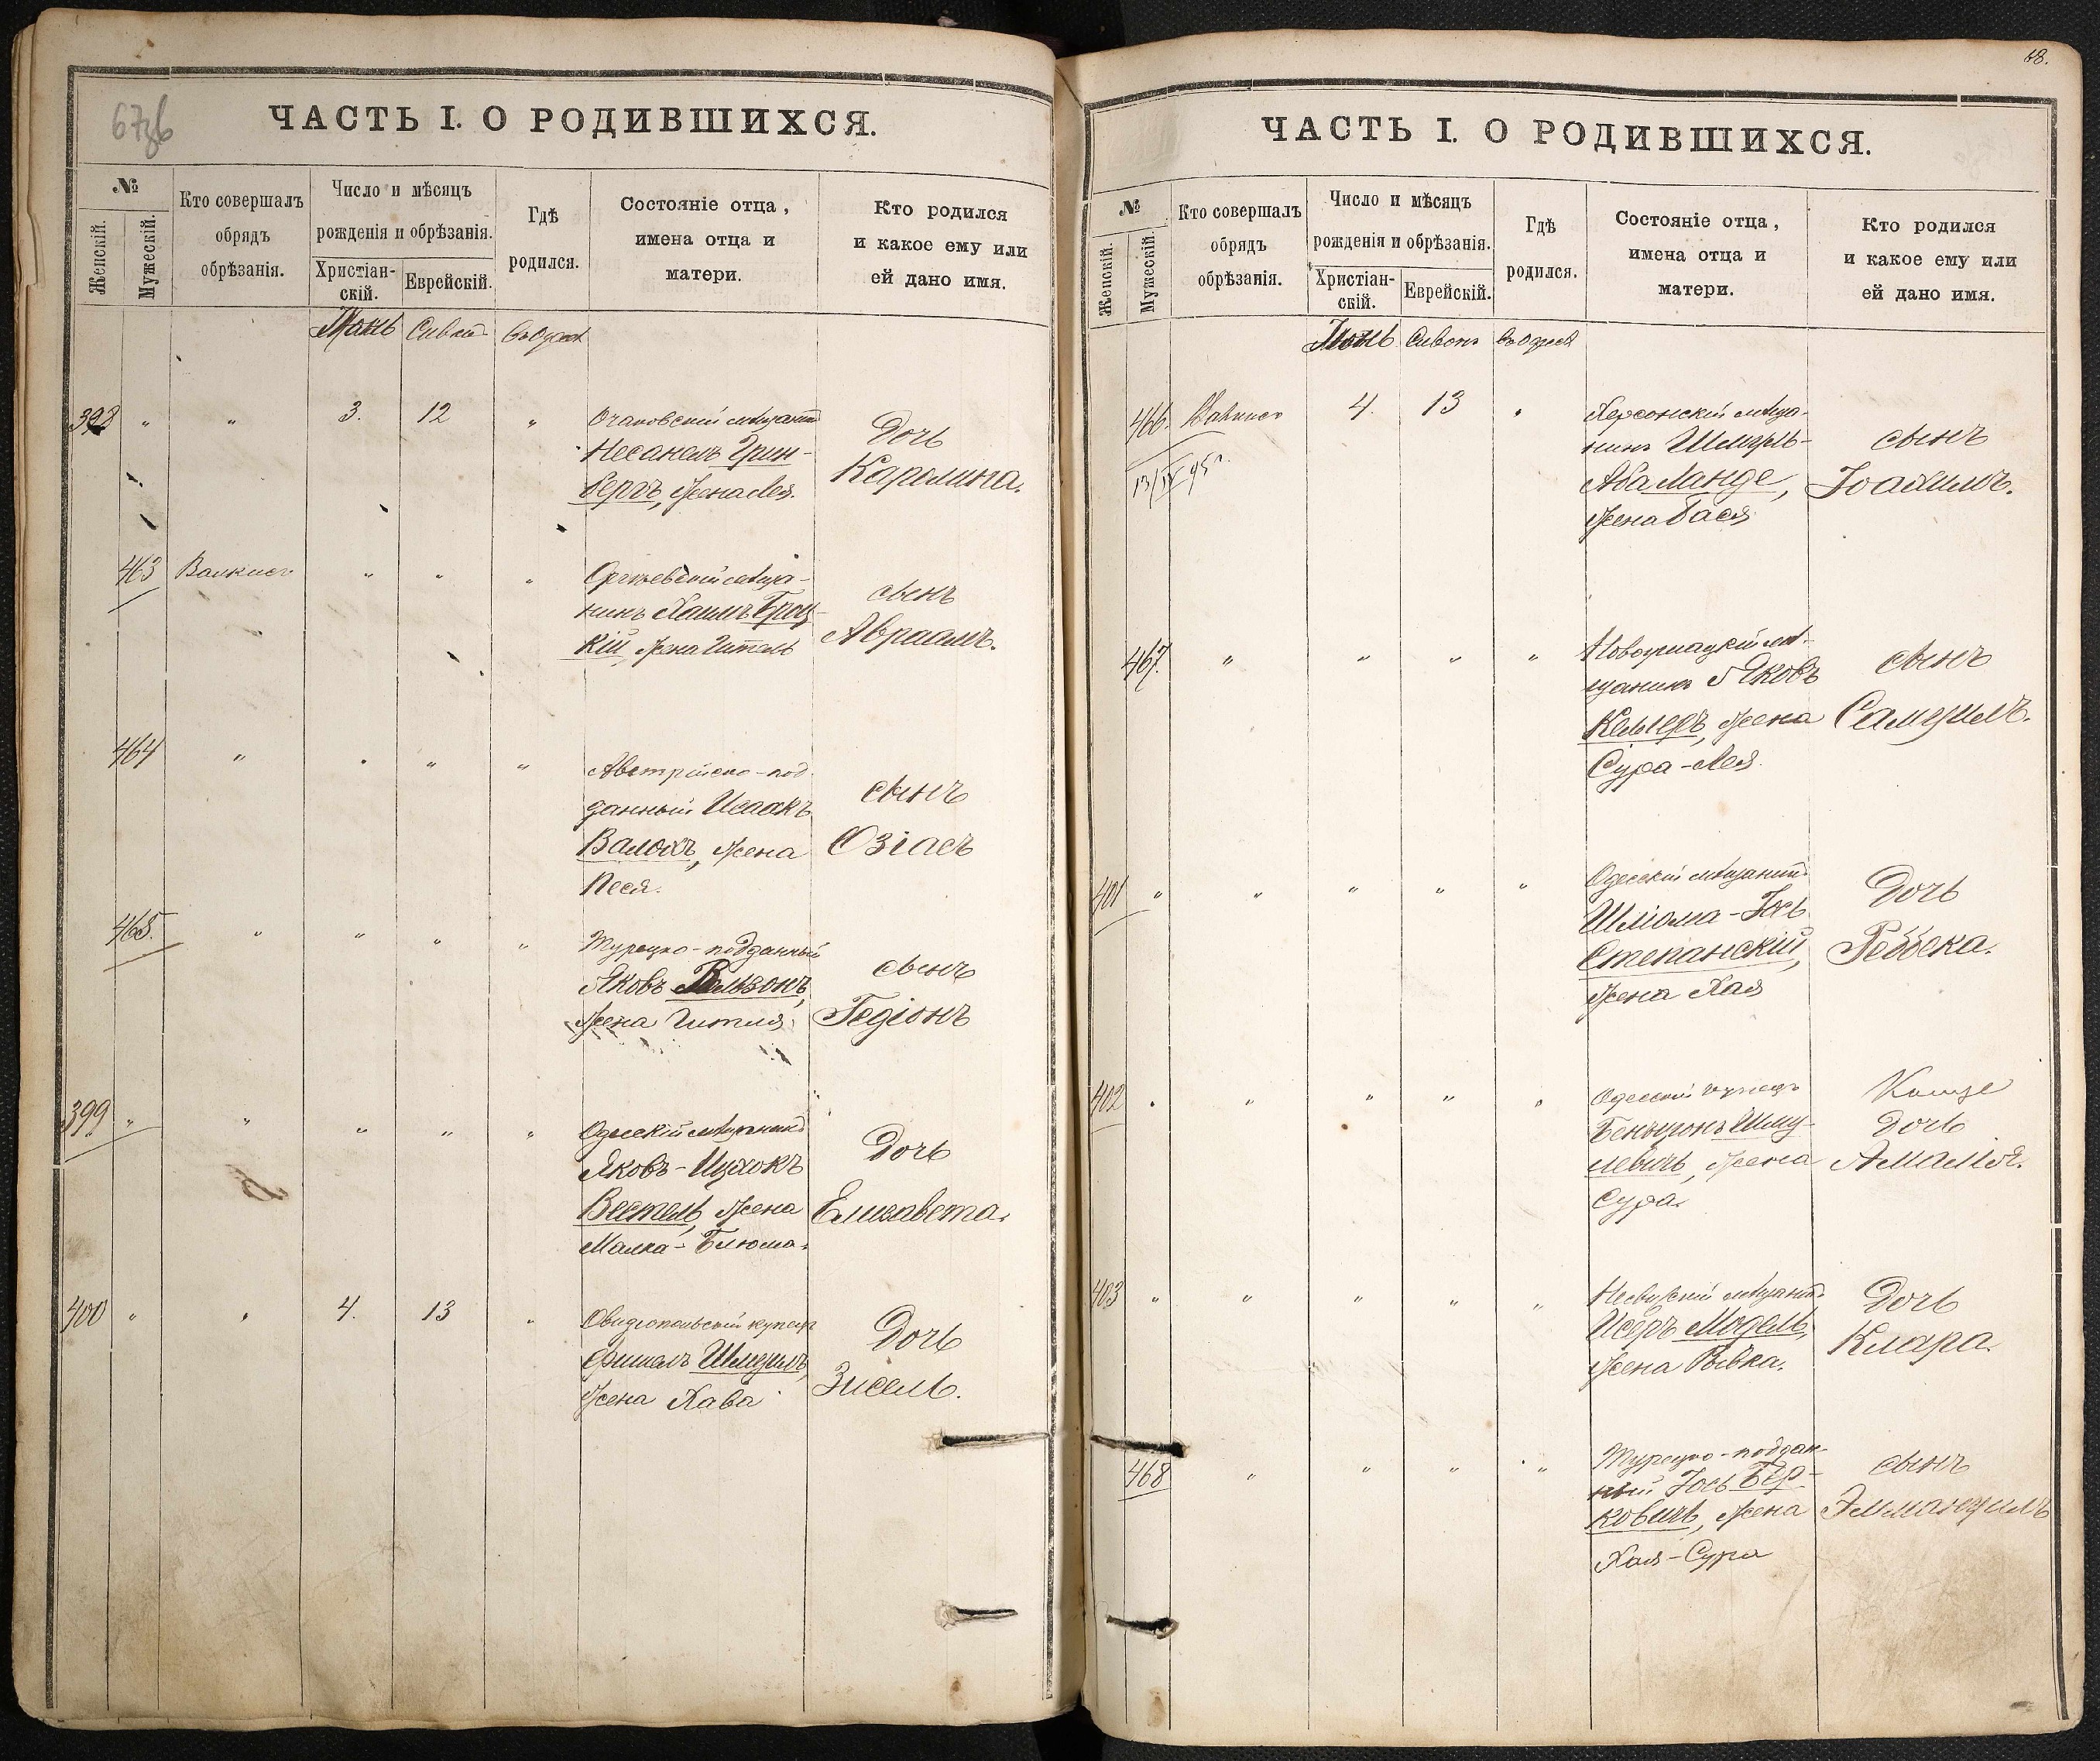 67зб
ЧАСТЬ I. О РОДИВШИХСЯ.
№
Женскій.
Мужескій.
Кто совершалъ
обрядъ
обрѣзанія.
Число и мѣсяцъ
рожденія и обрѣзанія.
Христіан-
скій.
Еврейскій.
Гдѣ
родился.
Состояніе отца,
имена отца и
матери.
Кто родился
и какое ему или
ей дано имя.
Сиванъ
въ Одессѣ
398 " " 3. 12 "
Очаковскій мѣщанинъ
Несанелъ Грин-
бергъ, жена Лея.
Дочь
Каролина.
463 " " "
Оргѣевскій мѣща-
нинъ Хаимъ Броц-
кій, жена Гитель
сынъ
Авраамъ.
464 " " " "
Австрійско-под-
данный Исаакъ
Валохъ, жена
Песя.
сынъ
Озіасъ
465. " " " "
Турецко-подданный
Яковъ
жена Гитля
сынъ
Гедіонъ
399 " " " " "
Одесскій мѣщанинъ
Яковъ-Ицхокъ
Вестель, жена
Малка-Блюма.
Дочь
Елизавета.
400 " " 4. 13 "
Овидіопольскій купецъ
Фишель Шмуилъ,
жена Хава
Дочь
Зисель.
68.
ЧАСТЬ I. О РОДИВШИХСЯ.
№
Женскій.
Мужескій.
Кто совершалъ
обрядъ
обрѣзанія.
Число и мѣсяцъ
рожденія и обрѣзанія.
Христіан-
скій.
Еврейскій.
Гдѣ
родился.
Состояніе отца,
имена отца и
матери.
Кто родился
и какое ему или
ей дано имя.
Сиванъ
въ Одессѣ
466. 4. 13 "
Херсонскій мѣща-
нинъ Шмуль-
Аба Ланде,
жена Бася
сынъ
Іоахимъ.
467. " " " "
мѣ-
щанинъ Яковъ
Кельнеръ, жена
Сура-Лея.
сынъ
Самуилъ.
401 " " " " "
Одесскій мѣщанинъ
Шліома-Іось
Степанскій,
жена Хая
Дочь
Ребека.
402 " " " " "
Одесскій купецъ
Бенціонъ Шму-
левичъ, жена
Сура.
Дочь
Амалія.
403 " " " " "
Несвижскій мѣщанинъ
Исеръ Модель,
жена Рывка.
Дочь
Клара.
468 " " " "
Турецко-поддан-
ный Іось Бер-
ковичъ, жена
Хая-Сура
сынъ
Эммануилъ